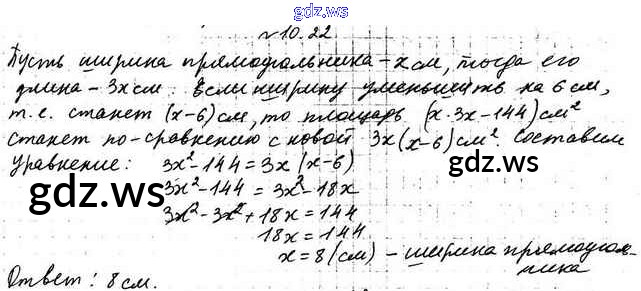 gdz.ws
№10.22
Пусть ширина прямоугольника - x см, тогда его
длина - 3x см. Если ширину уменьшить на 6 см,
т.е. станет (x-6) см, то площадь (x·3x-144) см²
станет по-сравнению с новой 3x(x-6) см². Составим
уравнение: 3x²-144=3x(x-6)
gdz.ws gdz.ws
3x²-144=3x²-18x
3x²-3x²+18x=144
18x=144
x=8(см) - ширина прямоуголь-
ника
Ответ: 8 см.
gdz.ws